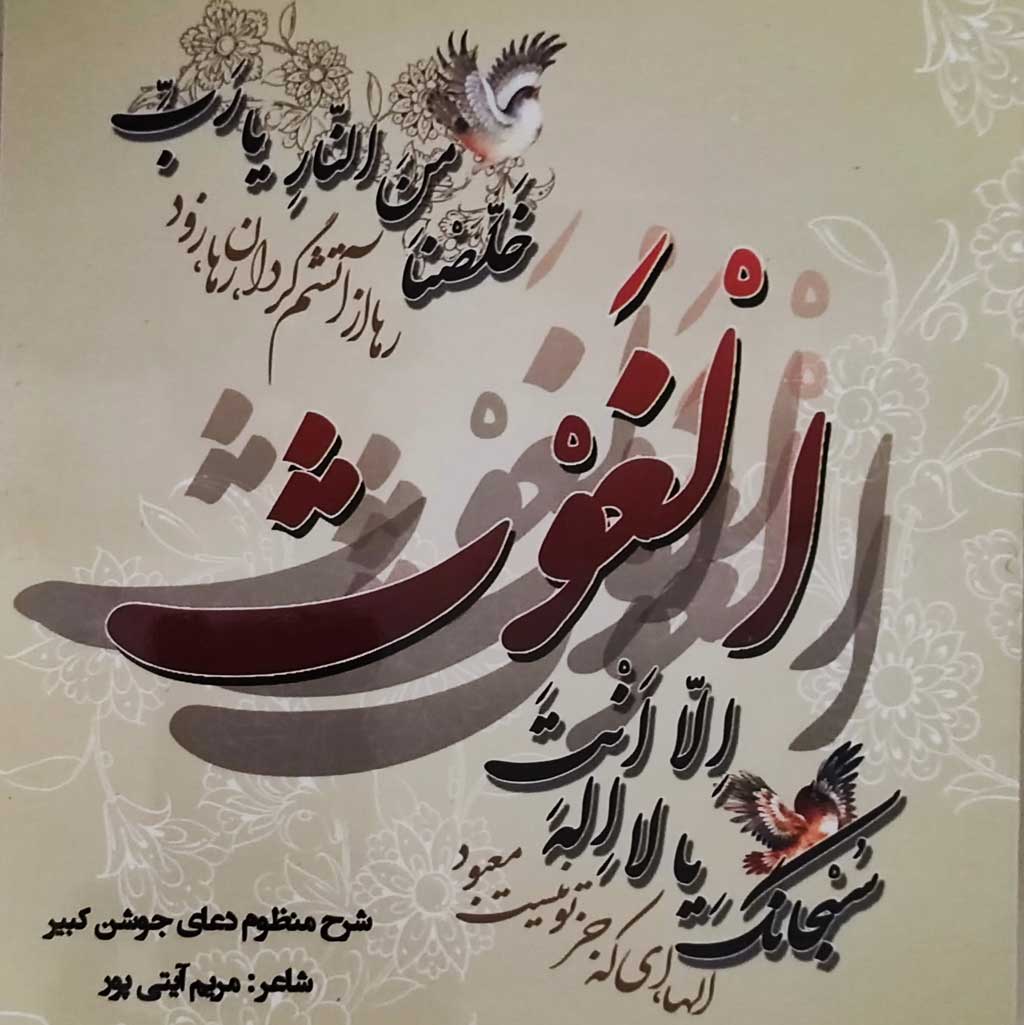 خَلِّصْنَا مِنَ النَّارِ يا رَبِّ
رها از آتشم گردان، رها، زود
اَلْغَوْث
سُبْحانَكَ يا لا اِلهَ
اِلّا اَنْتَ
الها، ای که جز تو نیست معبود
شرح منظوم دعای جوشن کبیر
شاعر: مریم آیتی پور